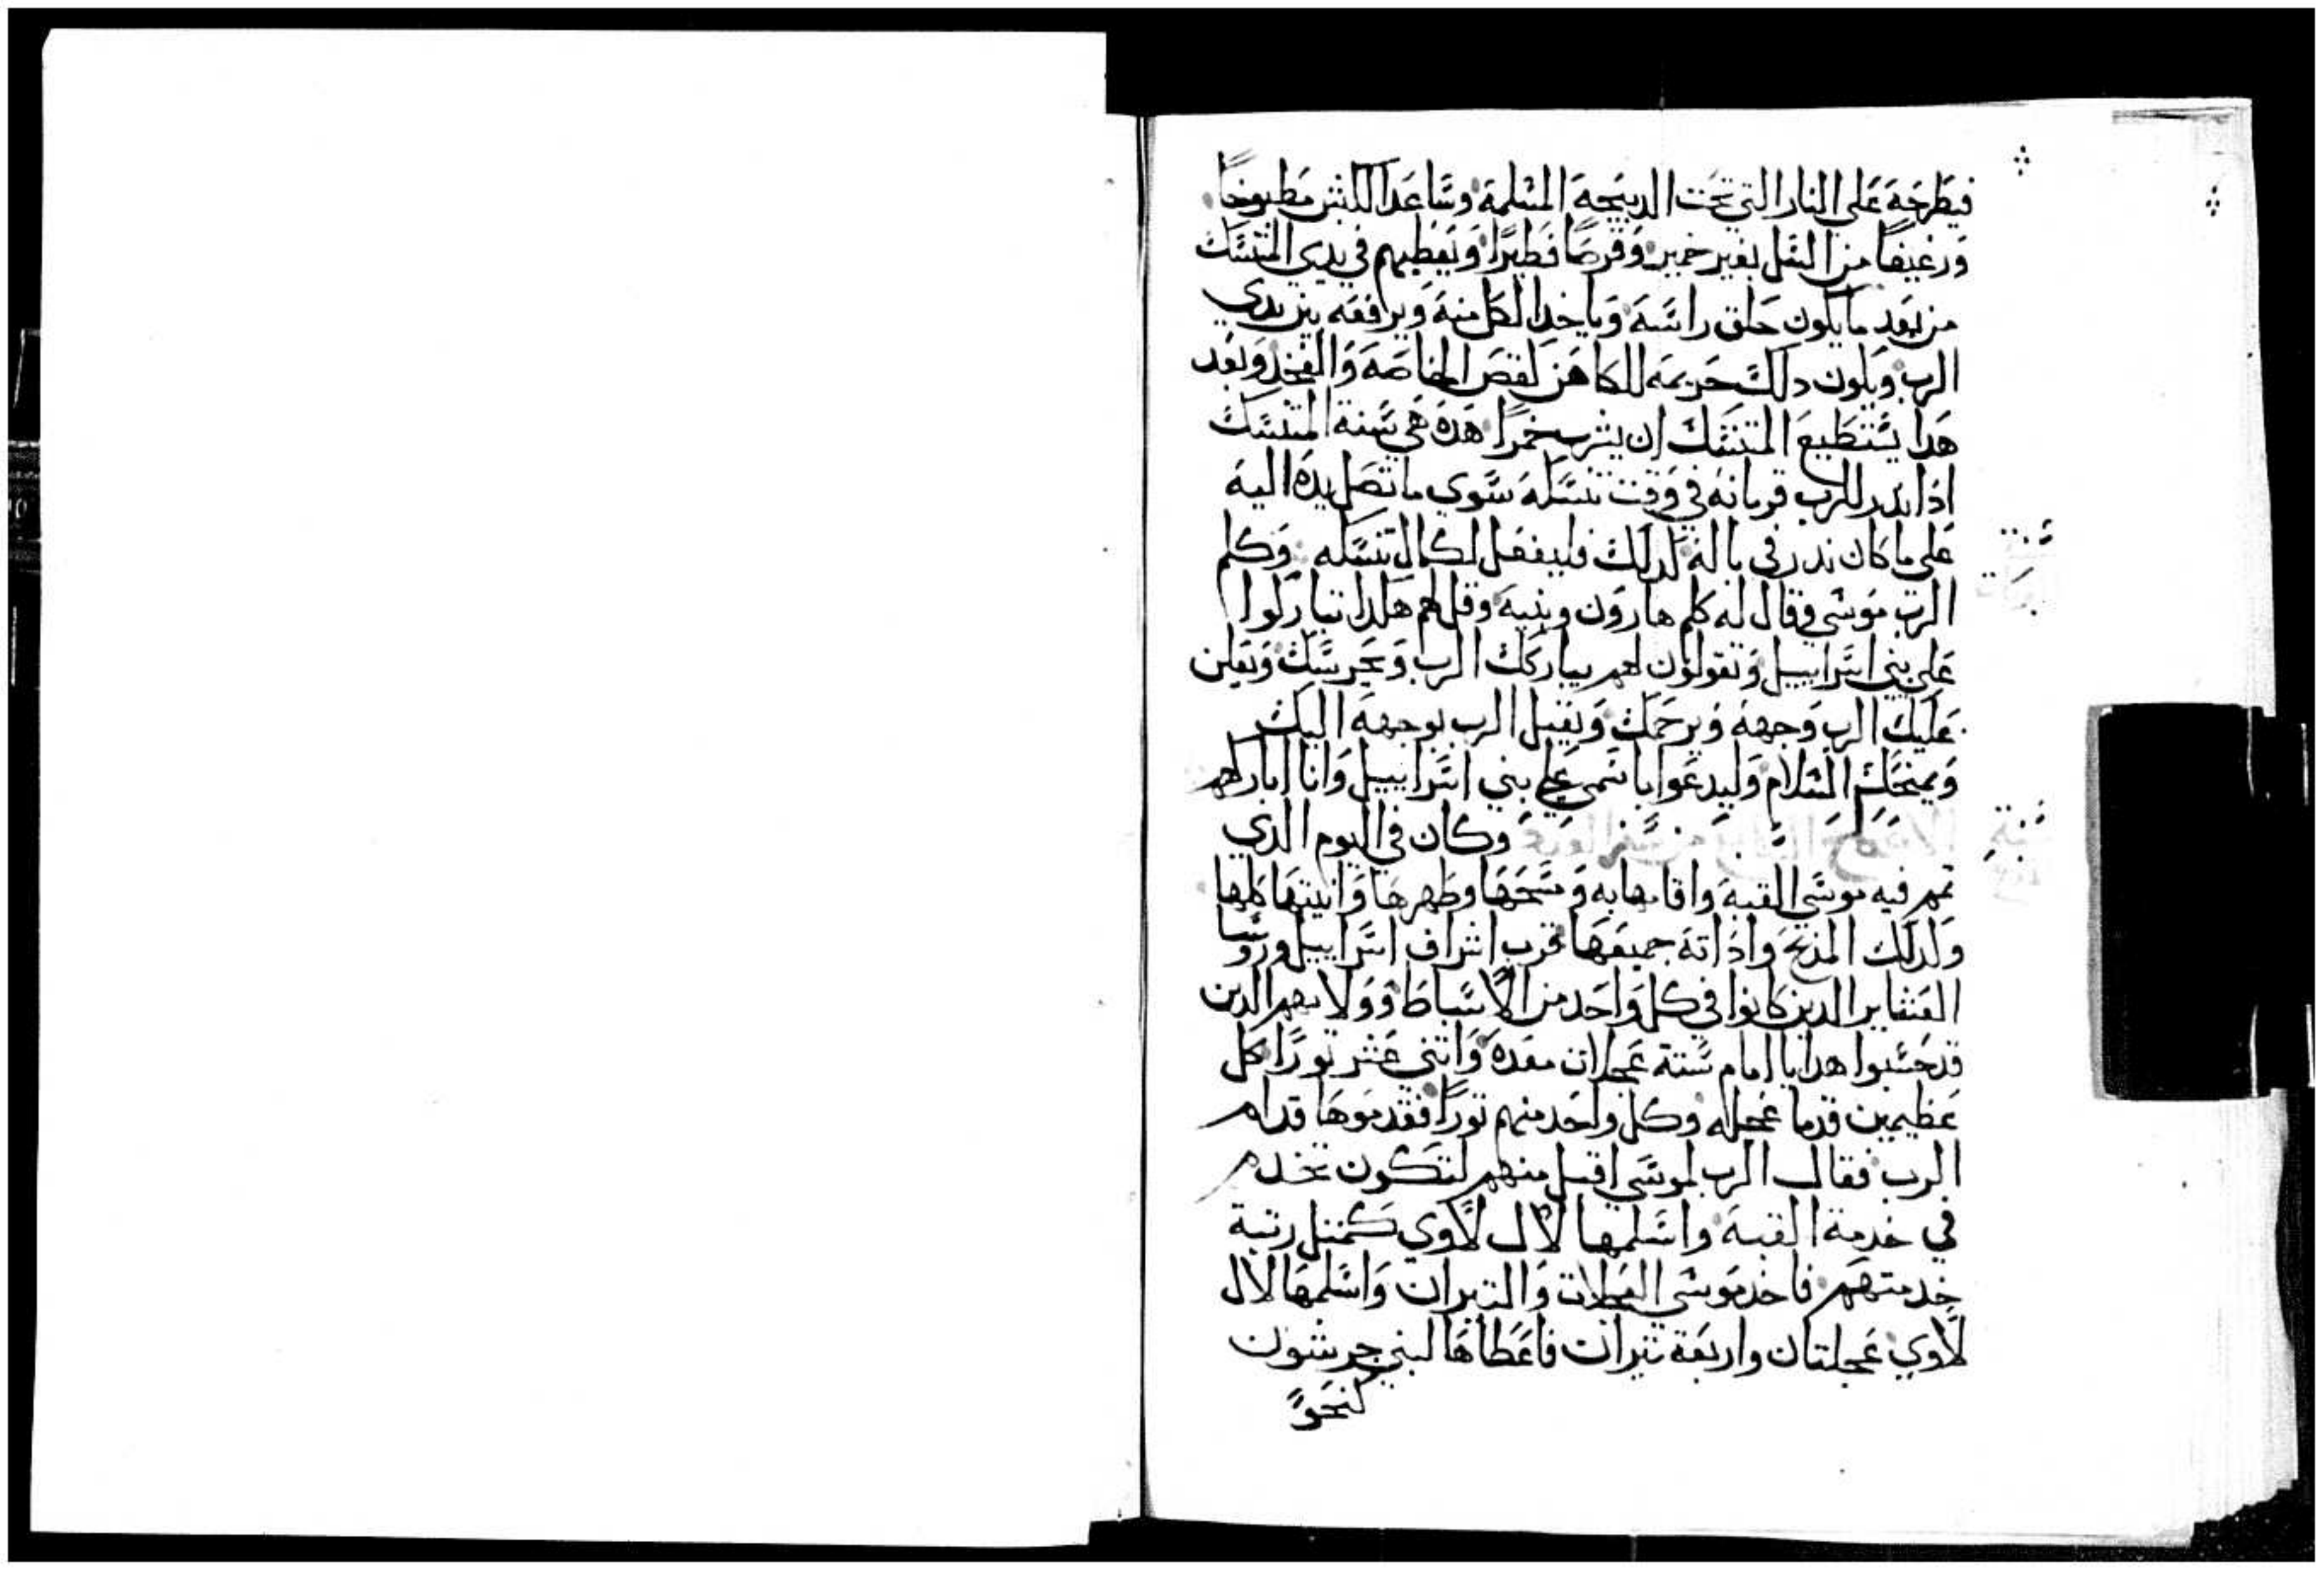 فيطرحه على النار التي تحت الدبيحة المسلمة وساعد الكبش مطبوخًا
ورغيفًا من السل بغير خمير وقرصًا فطيرًا ويعطيهم في يدي المتنسك
من بعد ما يكون حلق راسه وياخد الكل منه ويرافعه بين يدي
الرب ويكون دلك حريمه للكاهن لقص الخاصه والفخد وبعد
هدا يستطيع المتنسك ان يشرب خمرًا هده هي سنة المتنسك
ادا ندر للرب قربانه في وقت تنسكه سوى ما تصل يده اليه
على ما كان ندر في باله كدلك فليفعل لكمال تنسكه وكلم
الرب موسى وقال له كلم هارون وبنيه وقل لهم هكدا تباركوا
على بني اسراييل وتقولون لهم يباركك الرب ويحرسك ويعلن
عليك الرب وجهه ويرحمك ويقبل الرب بوجهه اليك
ويمنحك السلام وليدعوا باسمي على بني اسراييل وانا اباركهم
وكان في اليوم الدي
تمم فيه موسى القبة واقامها به ومسحها وطهرها وانيتها كلها
ولدلك المدبح واداته جميعها قرب اشراف اسراييل وروسا
العشاير الدين كانوا في كل واحد من الاسباط وولاتهم الدين
قد حسبوا هدايا امام ستة عجلات معده واثني عشر تورًا كل
عظيمين قدما عجله وكل واحد منهم تورًا فقدموها قدام
الرب فقال الرب لموسى اقبل منهم لتكون تخدم
في خدمة القبة واسلمها لال لاوي كمتل رتبة
خدمتهم فاخد موسى العجلات والتيران واسلمها لال
لاوي عجلتان واربعة تيران فاعطاها لبني جرشون
كنحو